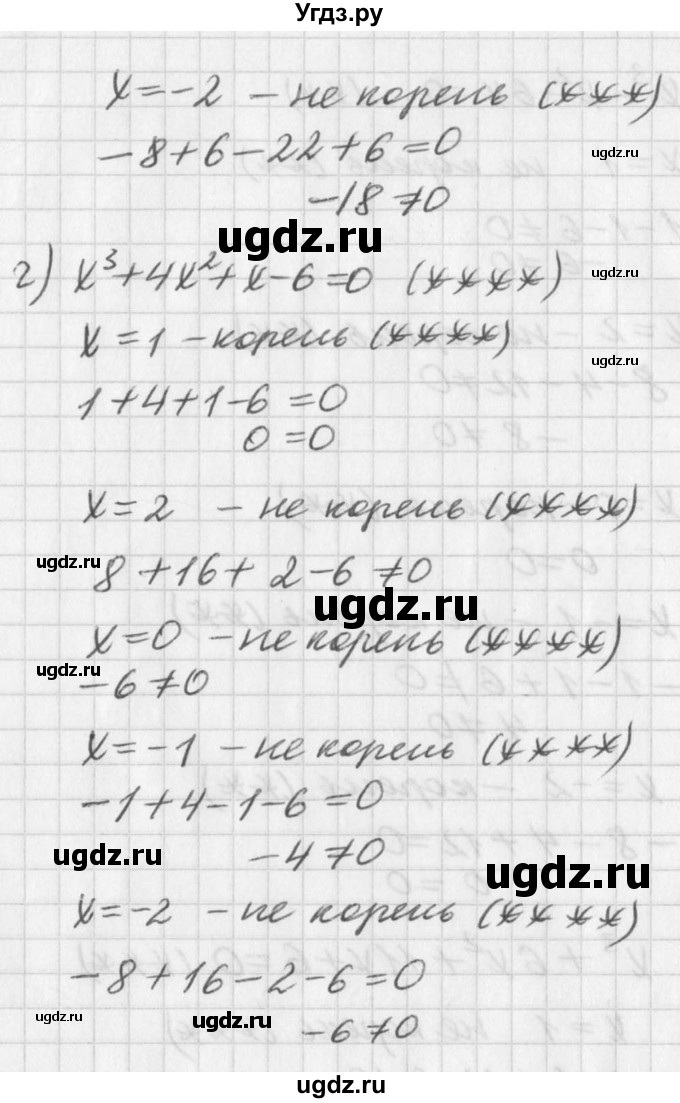 Угдз.ру
x = -2 - не корень (***)
-8+6-22+6=0
ugdz.ru
-18≠0
ugdz.ru
г) x³+4x²+x-6=0 (****)
ugdz.ru
x = 1 - корень (****)
ugdz.ru
1+4+1-6=0
0=0
x = 2 - не корень (****)
ugdz.ru
8+16+2-6≠0
ugdz.ru
x=0 - не корень (****)
ugdz.ru
-6≠0
x=-1 - не корень (****)
-1+4-1-6=0
ugdz.ru
-4≠0
ugdz.ru
x=-2 - не корень (****)
-8+16-2-6=0
ugdz.ru
ugdz.ru
-6≠0
ugdz.ru
ugdz.ru